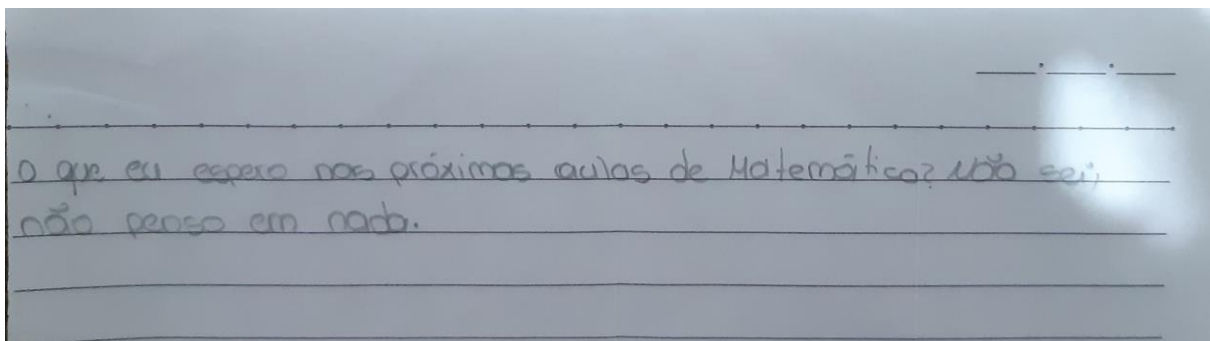 O que eu espero nas próximas aulas de Matemática? Não sei,
não penso em nada.